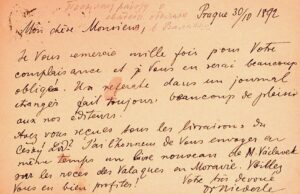 Prague 30/10 1892
Mon chère Monsieur,
Je Vous remercie mille fois pour Votre
complaisance et je Vous en serai beaucoup
obligea. Un referate dans un journal
changés fait toujours beaucoup de plaisir
aux nos editeurs.
Avez vous reçues tous les livraisons du
Český Lid? J'ai l'honneur de Vous envoyer au
même temps un livre nouveau de M. Václavek
sur les noces des Valaques en Moravie. Veillez
Vous en bien profiter! Votre très devoué
Dr Niederle